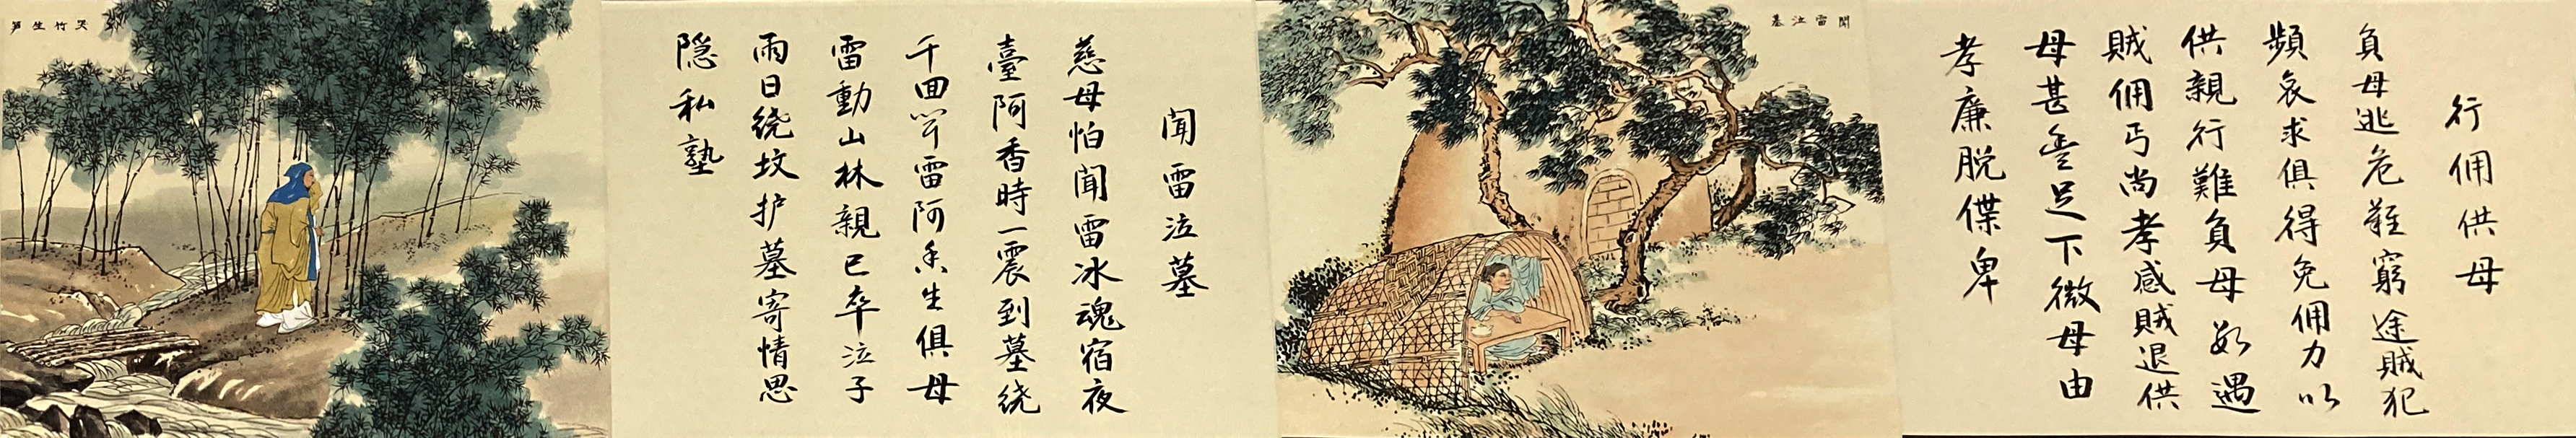 行佣供母
負母逃危難窮途賊犯
頻哀求俱得免佣力以
供親行難負母数遇
賊佣丐尚孝感賊退供
母甚足下微母由
孝廉脱傑卑
聞雷泣墓
聞雷泣墓
慈母怕聞雷冰魂宿夜
臺阿香時一震到墓绕
千回闻雷阿香生俱母
雷動山林親已卒泣子
雨日绕坟护墓寄情思
隐私塾
哭竹生笋